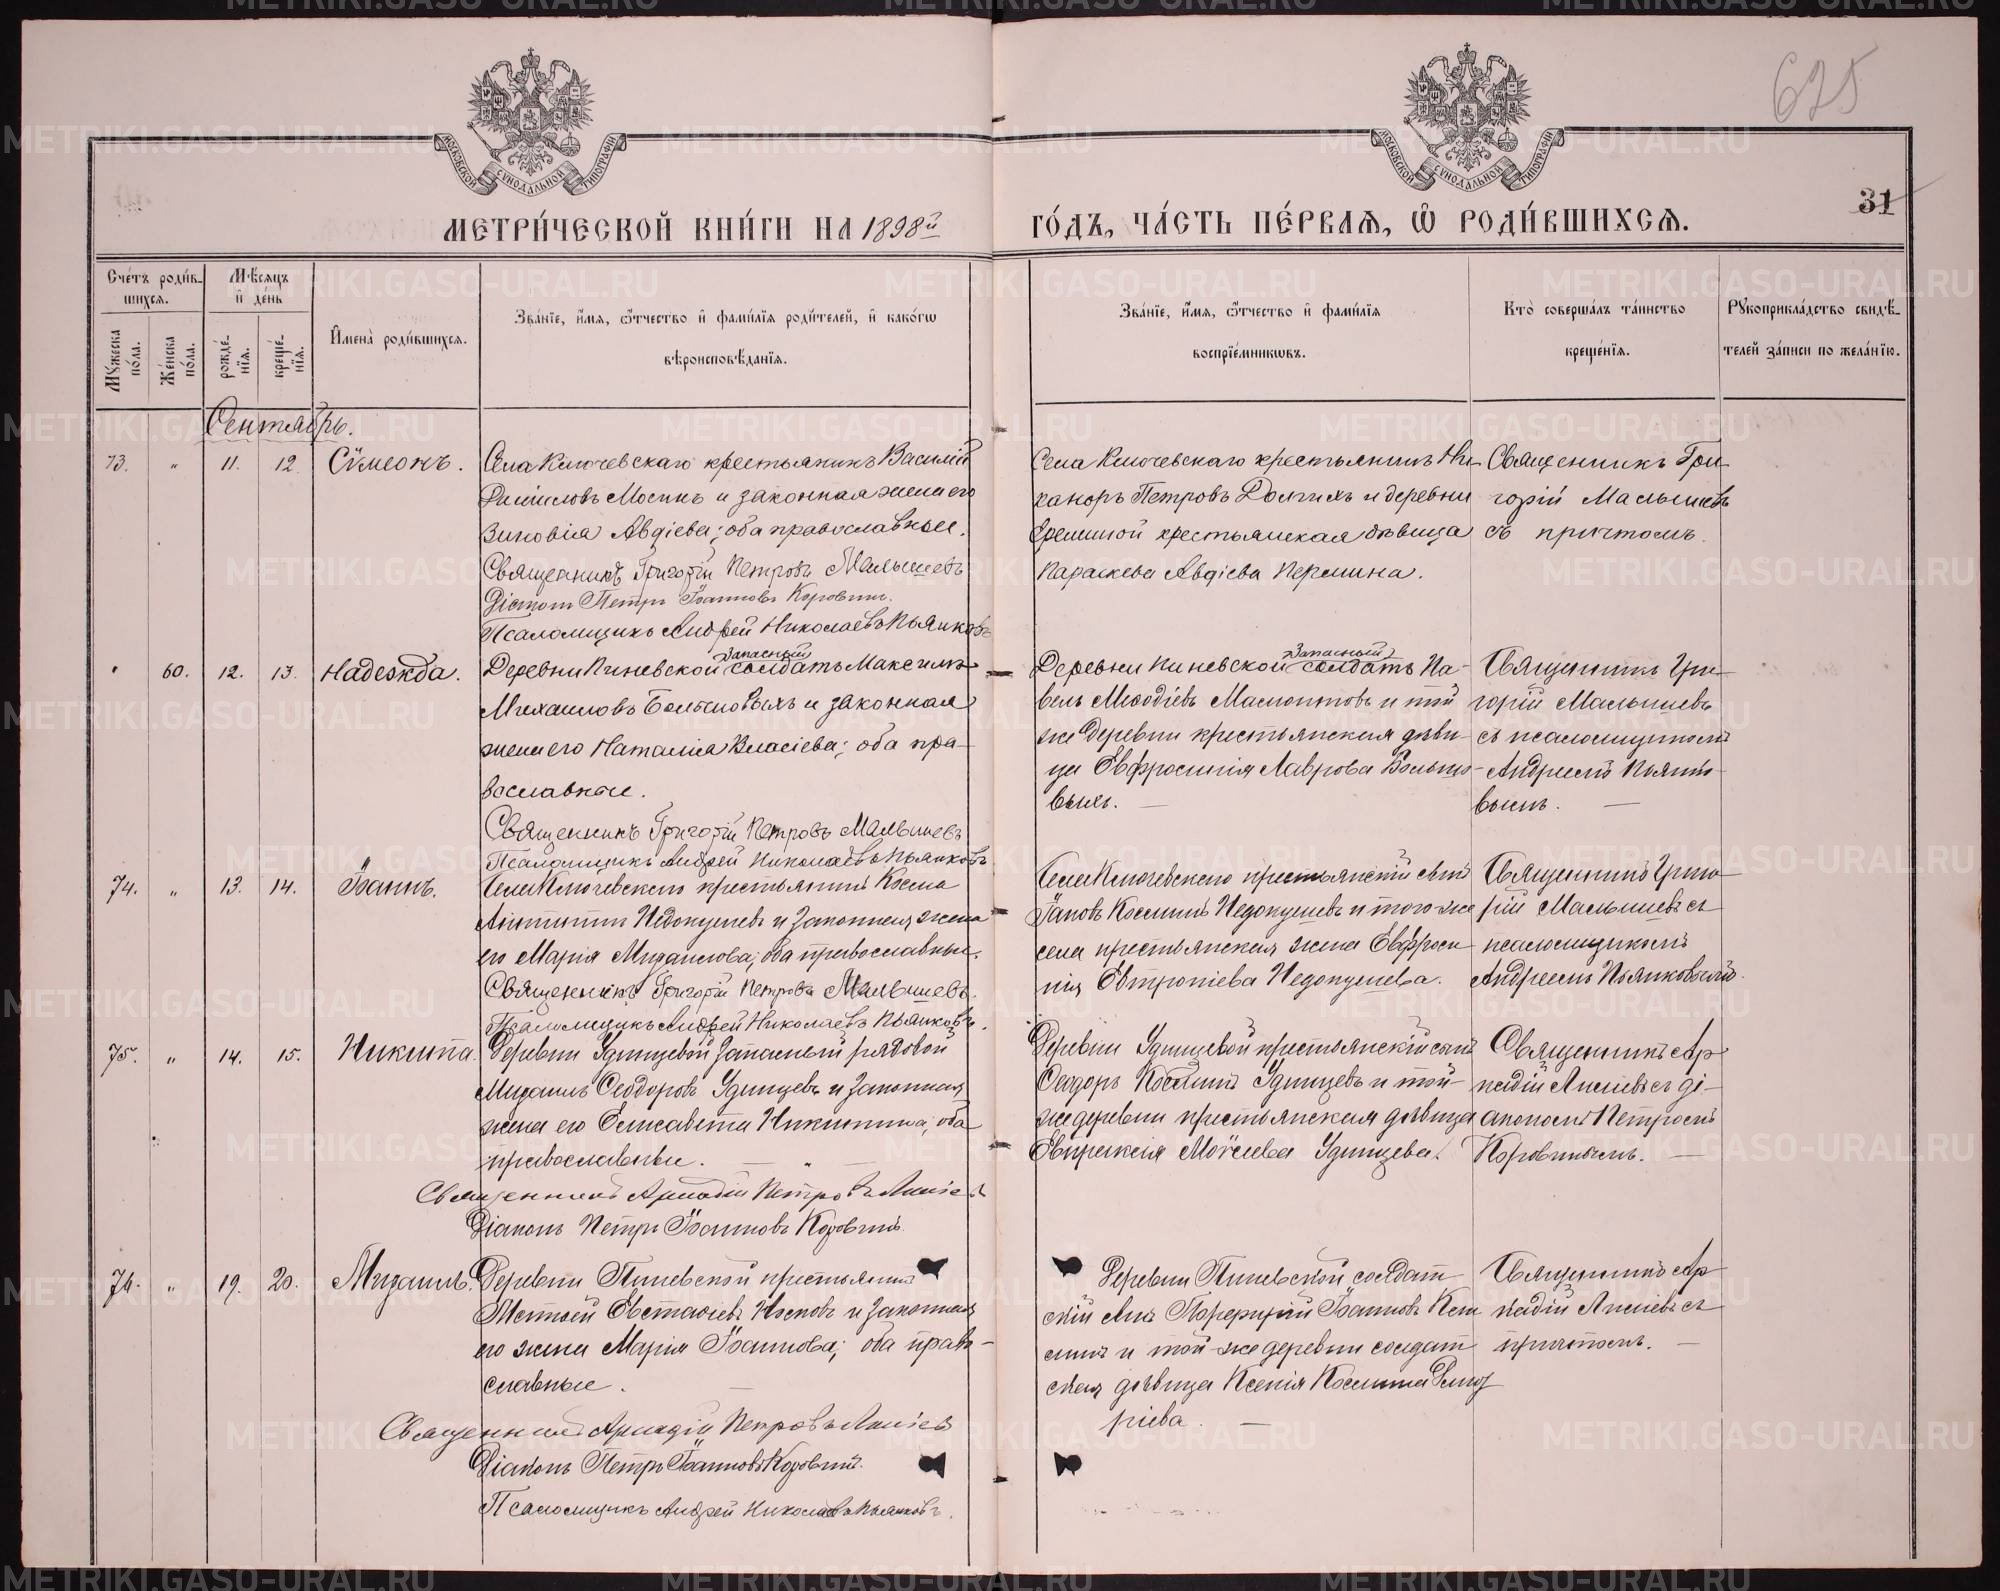 625
МОСКОВСКОЙ СУНОДАЛЬНОЙ ТИПОГРАФІИ
МОСКОВСКОЙ СУНОДАЛЬНОЙ ТИПОГРАФІИ
31
МЕТРИ́ЧЕСКОЙ КНИ́ГИ НА 1898й
ГО́ДЪ, ЧА́СТЬ ПЕ́РВАЯ, Ѡ РОДИ́ВШИХСЯ.
Сче́тъ роди́в-
шихся.
Мꙋжеска по́ла.
Же́нска по́ла.
Мѣ́сяцъ
и҆ де́нь
рожде́-
нїя.
креще́-
нїя.
И҆мена̀ роди́вшихся.
Зва́нїе, и҆́мя, ѻ҆́тчество и҆ фами́лїя роди́телей, и҆ како́гѡ
вѣроисповѣ́данїя.
Зва́нїе, и҆́мя, ѻ҆́тчество и҆ фами́лїя
воспрїе́мникѡвъ.
Кто̀ соверша́лъ та́инство
креще́нїя.
Рꙋкоприкла́дство свидѣ́-
телей за́писи по жела́нїю.
Сентябрь.
73. " 11. 12 Сѵмеонъ.
Села Ключевскаго крестьянинъ Василій
Мосинъ и законная жена его
Зиновія Авдіева; оба православные.
Священникъ Григорій Петровъ Малышевъ
Діаконъ Петръ Іоанновъ Коровинъ.
Псаломщикъ Андрей Николаевъ Пьянковъ
Села Ключевскаго крестьянинъ Ни-
каноръ Петровъ Долгихъ и деревни
Ереминой крестьянская дѣвица
Параскева Авдіева Пермина.
Священникъ Гри-
горій Малышевъ
съ причтомъ.
" 60. 12. 13. Надежда.
Деревни Пиневской запасный солдатъ Максимъ
Михаиловъ Большовыхъ и законная
жена его Наталія Власіева; оба пра-
вославные.
Священникъ Григорій Петровъ Малышевъ
Псаломщикъ Андрей Николаевъ Пьянковъ
Деревни Пиневской запасный солдатъ Па-
велъ Меѳодіевъ Мамонтовъ и той
же деревни крестьянская дѣви-
ца Евфросинія Лаврова Большо-
выхъ. —
Священникъ Гри-
горій Малышевъ
съ псаломщикомъ
Андреемъ Пьянко-
вымъ. —
74. " 13. 14. Іоаннъ.
Села Ключевскаго крестьянинъ Косма
Недокушевъ и законная жена
его Марія Михаилова; оба православные.
Священникъ Григорій Петровъ Малышевъ.
Псаломщикъ Андрей Николаевъ Пьянковъ.
Села Ключевскаго крестьянскій сынъ
Іаковъ Косминъ Недокушевъ и того же
села крестьянская жена Евфроси-
нія Евтропіева Недокушева.
Священникъ Григо-
рій Малышевъ съ
псаломщикомъ
Андреемъ Пьянковымъ.
75. " 14. 15. Никита.
Деревни Удинцевой запасный рядовой
Михаилъ Ѳеодоровъ Удинцевъ и законная
жена его Елисавета Никитина; оба
православные. — " —
Священникъ Аркадій Петровъ
Діаконъ Петръ Іоанновъ Коровинъ.
Деревни Удинцевой крестьянскій сынъ
Ѳеодоръ Косминъ Удинцевъ и той-
же деревни крестьянская дѣвица
Евпраксія Моѵсіева Удинцева.
Священникъ Ар-
кадій съ ді-
акономъ Петромъ
Коровинымъ. —
76. " 19. 20. Михаилъ.
Деревни Пиневской крестьянинъ
Евстаѳіевъ и законная
его жена Марія Іоаннова; оба право-
славные. —
Священникъ Аркадій Петровъ
Діаконъ Петръ Іоанновъ Коровинъ.
Псаломщикъ Андрей Николаевъ Пьянковъ.
Деревни Пиневской солдат-
скій сынъ Порфирій Іоанновъ
и той-же деревни солдат-
ская дѣвица Ксенія Космина
Священникъ Ар-
кадій съ
причтомъ. —
METRIKI.GASO-URAL.RU